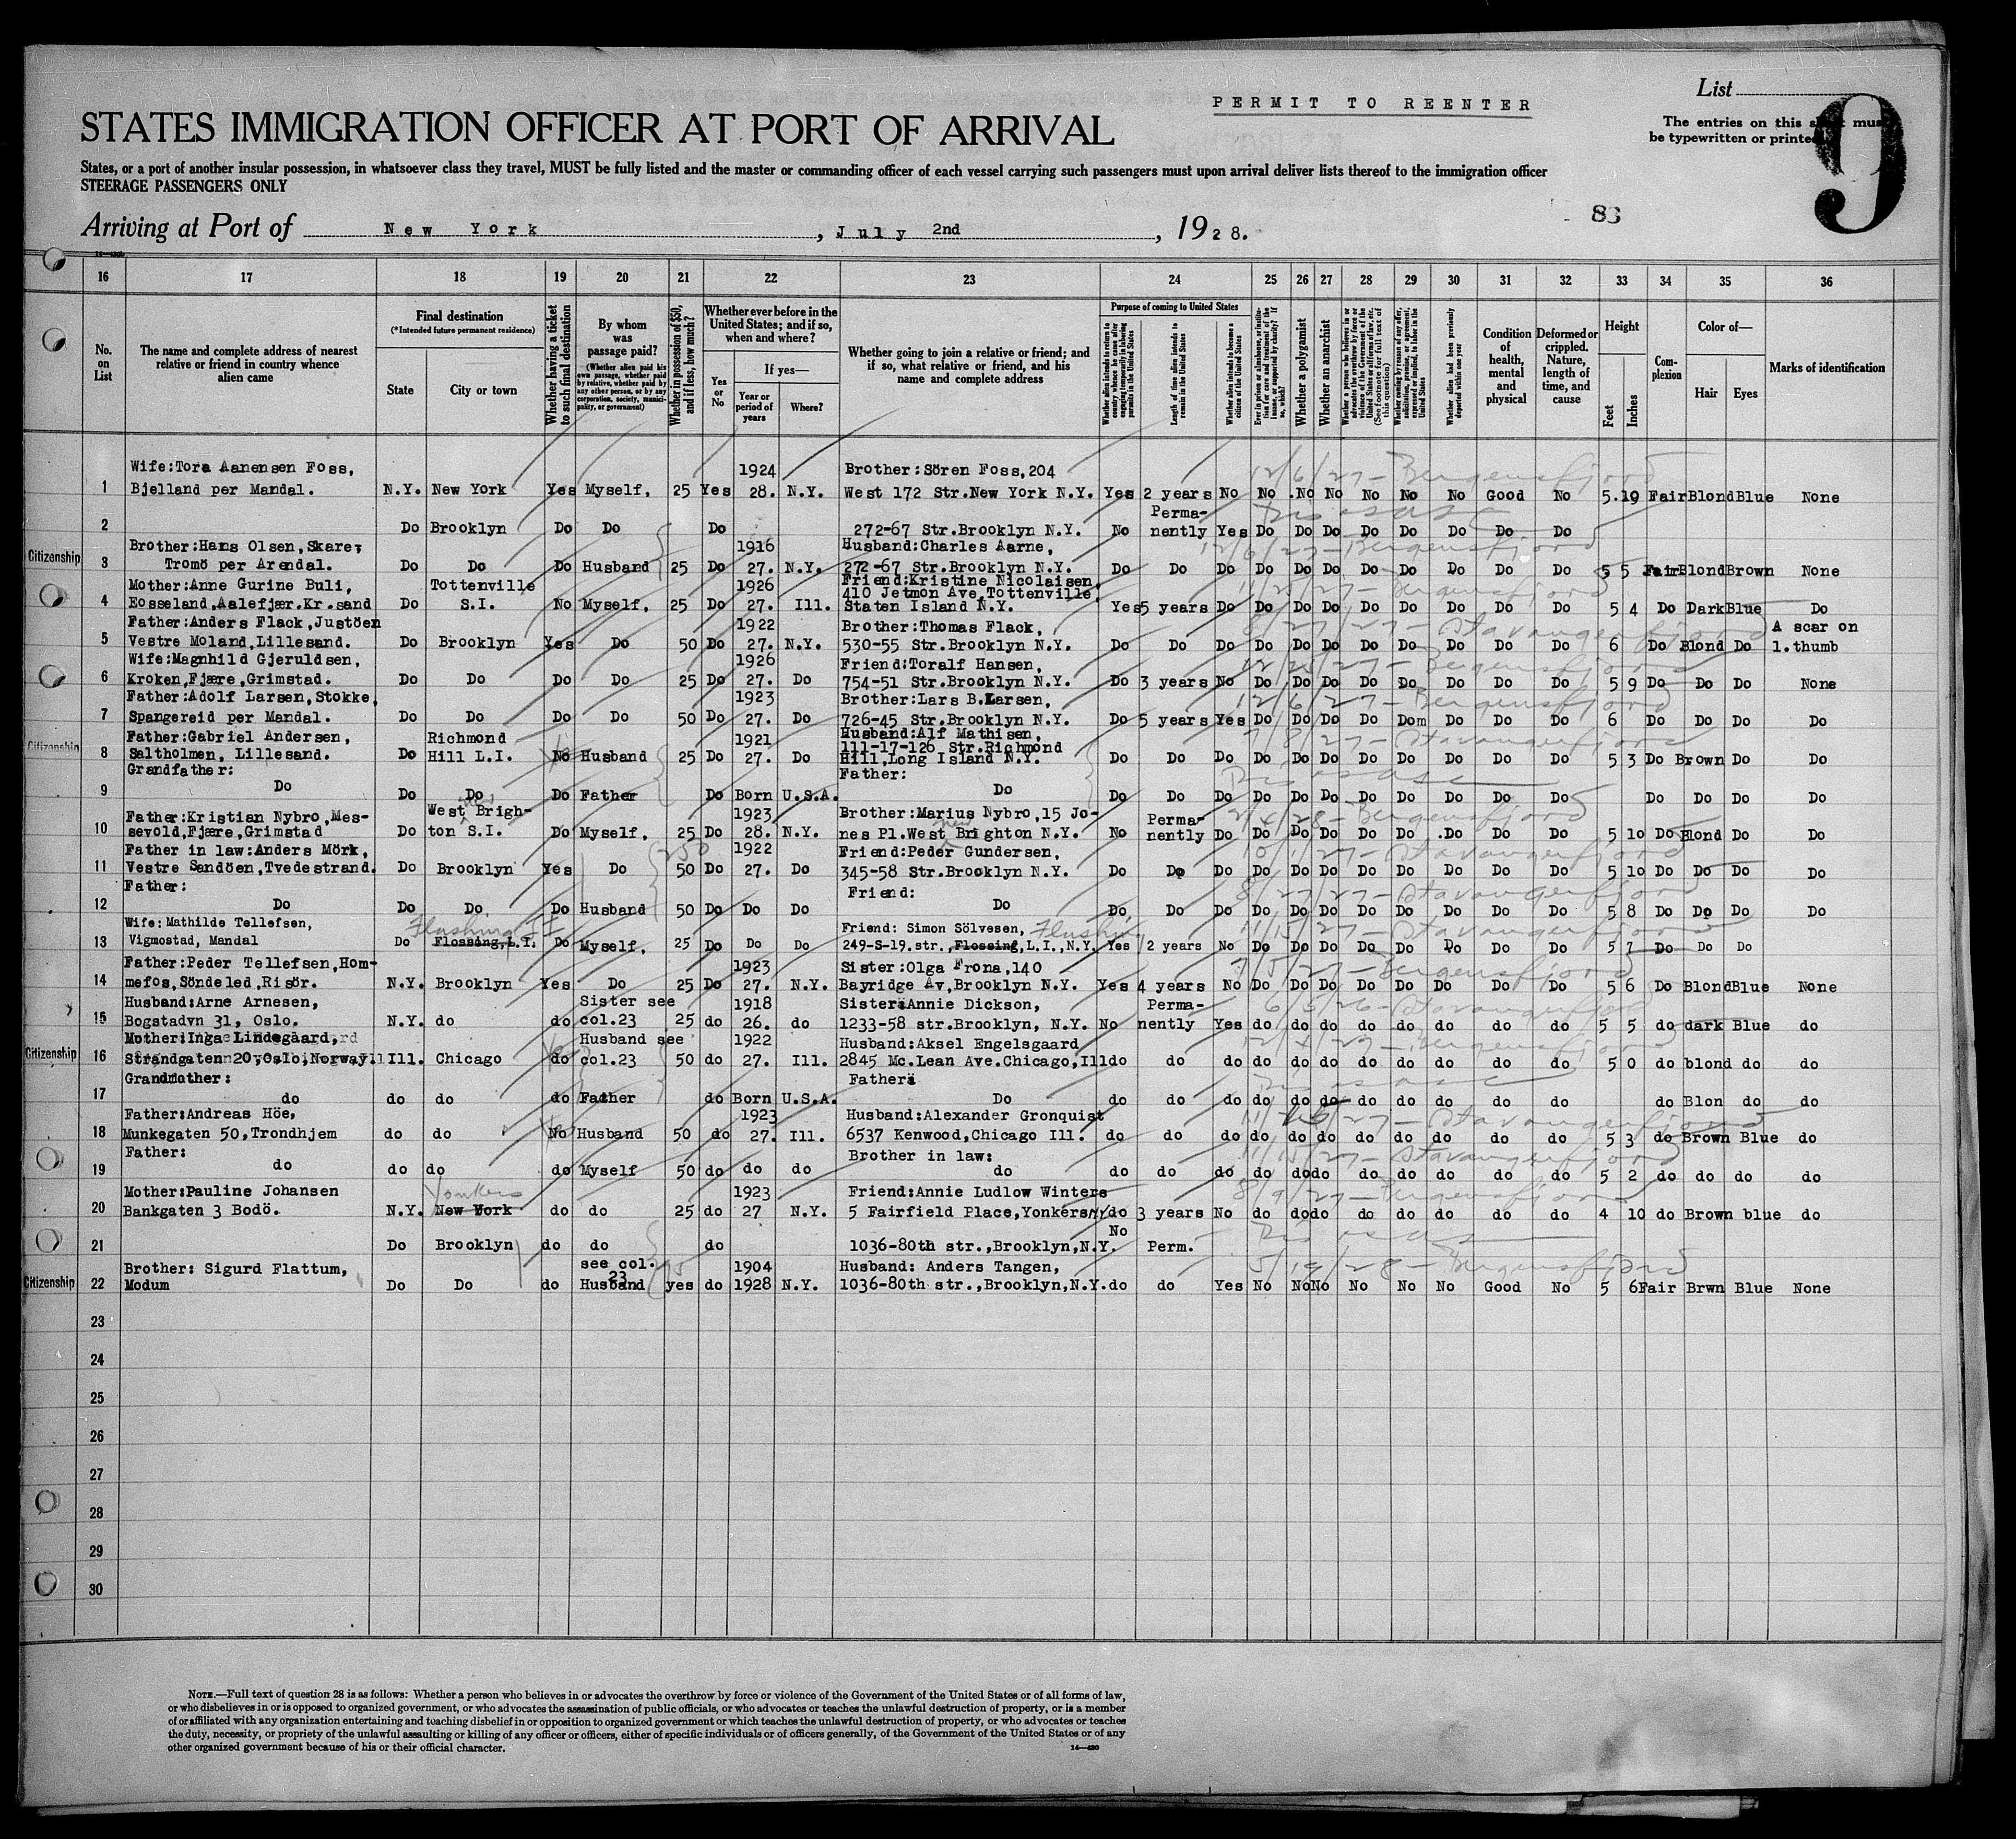 PERMIT TO REENTER
List
9
STATES IMMIGRATION OFFICER AT PORT OF ARRIVAL
The entries on this must
be typewritten or printed
States, or a port of another insular possession, in whatsoever class they travel, MUST be fully listed and the master or commanding officer of each vessel carrying such passengers must upon arrival deliver lists thereof to the immigration officer
STEERAGE PASSENGERS ONLY
Arriving at Port of New York, July 2nd, 1928.
16 17 18 19 20 21 22 23 24 25 26 27 28 29 30 31 32 33 34 35 36
No. on List
The name and complete address of nearest relative or friend in country whence alien came
Final destination
(*Intended future permanent residence)
State
City or town
Whether having a ticket to such final destination
By whom was passage paid?
(Whether alien paid his own passage, whether paid by relative, whether paid by any other person, or by any corporation, society, municipality, or government)
Whether in possession of $50, and if less, how much?
Whether ever before in the United States; and if so, when and where?
Yes or No
If yes—
Year or period of years
Where?
Whether going to join a relative or friend; and if so, what relative or friend, and his name and complete address
Purpose of coming to United States
Length of time alien intends to remain in the United States
Whether alien intends to become a citizen of the United States
Whether a polygamist
Whether an anarchist
Whether alien had been previously deported within one year
Condition of health, mental and physical
Deformed or crippled. Nature, length of time, and cause
Height
Feet
Inches
Complexion
Color of—
Hair
Eyes
Marks of identification
1 Wife:Tora Aanensen Foss, Bjelland per Mandal. N.Y. New York Yes Myself, 25 Yes 1924 28. N.Y. Brother:Sören Foss,204 West 172 Str.New York N.Y. Yes 2 years No No No No No No No Good No 5.19 Fair Blond Blue None
12/6/27 - Bergensfjord
2 Do Brooklyn Do Do Do 272-67 Str.Brooklyn N.Y. No Permanently Yes Do Do Do Do Do Do Do Do
Citizenship 3 Brother:Hans Olsen,Skare, Tromö per Arendal. Do Do Do Husband 25 Do 1916 27. N.Y. Husband:Charles Aarne, 272-67 Str.Brooklyn N.Y. Do Do Do Do Do Do Do Do Do Do Do 5 5 Fair Blond Brown None
12/6/27 - Bergensfjord
4 Mother:Anne Gurine Buli, Eosseland,Aalefjær.Kr.sand Do Tottenville S.I. No Myself, 25 Do 1926 27. Ill. Friend:Kristine Nicolaisen, 410 Jetmon Ave,Tottenville, Staten Island N.Y. Yes 5 years Do Do Do Do Do Do Do Do Do 5 4 Do Dark Blue Do
Bergensfjord
5 Father:Anders Flack,Justöen Vestre Moland,Lillesand. Do Brooklyn Yes Do 50 Do 1922 27. N.Y. Brother:Thomas Flack, 530-55 Str.Brooklyn N.Y. Do Do Do Do Do Do Do Do Do Do Do 6 Do Blond Do A scar on l.thumb
8/27/27 - Stavangerfjord
6 Wife:Magnhild Gjeruldsen, Kroken,Fjære,Grimstad. Do Do Do Do 25 Do 1926 27. Do Friend:Toralf Hansen, 754-51 Str.Brooklyn N.Y. Do 3 years No Do Do Do Do Do Do Do Do 5 9 Do Do Do None
Bergensfjord
7 Father:Adolf Larsen,Stokke, Spangereid per Mandal. Do Do Do Do 50 Do 1923 27. Do Brother:Lars B.Larsen, 726-45 Str.Brooklyn N.Y. Do 5 years Yes Do Do Do Do Dom Do Do Do 6 Do Do Do Do
12/6/27 - Bergensfjord
Citizenship 8 Father:Gabriel Andersen, Saltholmen, Lillesand. Do Richmond Hill L.I. No Husband 25 Do 1921 27. Do Husband:Alf Mathisen, 111-17-126, Str.Richmond Hill,Long Island N.Y. Do Do Do Do Do Do Do Do Do Do Do 5 3 Do Brown Do Do
Stavangerfjord
9 Grandfather: Do Do Do Do Father Do Born U.S.A. Father: Do Do Do Do Do Do Do Do Do Do Do Do Do Do Do Do
10 Father:Kristian Nybro,Messevold,Fjære,Grimstad Do West Brighton S.I. Do Myself, 25 Do 1923 28. N.Y. Brother:Marius Nybro,15 Jones Pl.West New Brighton N.Y. No Permanently Do Do Do Do Do Do Do Do Do 5 10 Do Blond Do Do
2/4/28 - Bergensfjord
11 Father in law:Anders Mörk, Vestre Sandöen,Tvedestrand. Do Brooklyn Yes Do 50 Do 1922 27. Do Friend:Peder Gundersen, 345-58 Str.Brooklyn N.Y. Do Do Do Do Do Do Do Do Do Do Do 5 10 Do Do Do Do
Stavangerfjord
12 Father: Do Do Do Do Husband 50 Do Do Do Friend: Do Do Do Do Do Do Do Do Do Do Do Do 5 8 Do Do Do Do
8/27/27 - Stavangerfjord
13 Wife: Mathilde Tellefsen, Vigmostad, Mandal Do Flossing,L.I. Flushing Do Myself, 25 Do Do Do Friend: Simon Sölvesen, 249-S-19.str.,Flossing,L.I.,N.Y. Flushing Yes 2 years No Do Do Do Do Do Do Do Do 5 7 Do Do Do
11/15/27 - Stavangerfjord
14 Father:Peder Tellefsen,Hommefos,Söndeled,Risör. N.Y. Brooklyn Yes Do 25 Do 1923 27. N.Y. Sister:Olga Frona,140 Bayridge Av,Brooklyn N.Y. Yes 4 years No Do Do Do Do Do Do Do Do 5 6 Do Blond Blue None
Bergensfjord
15 Husband:Arne Arnesen, Bogstadvn 31, Oslo. N.Y. do do Sister see col.23 25 do 1918 26. do Sister:Annie Dickson, 1233-58 str.Brooklyn, N.Y. No Permanently Yes do do do do do do do do 5 5 do dark Blue do
Stavangerfjord
Citizenship 16 Mother:Inga Lindegaard, Strandgaten 20,Oslo,Norway. Ill. Chicago do Husband see col.23 50 do 1922 27. Ill. Husband:Aksel Engelsgaard 2845 Mc.Lean Ave.Chicago,Ill do do do do do do do do do do do 5 0 do blond do do
Bergensfjord
17 Grandmother: do do do do Father do Born U.S.A. Father: Do do do do do do do do do do do do do Blon do do
18 Father:Andreas Höe, Munkegaten 50,Trondhjem do do No Husband 50 do 1923 27. Ill. Husband:Alexander Gronquist 6537 Kenwood,Chicago Ill. do do do do do do do do do do do 5 3 do Brown Blue do
Stavangerfjord
19 Father: do do do do Myself 50 do do do Brother in law: do do do do do do do do do do do do 5 2 do do do do
11/15/27 - Stavangerfjord
20 Mother:Pauline Johansen Bankgaten 3 Bodö. N.Y. New York Yonkers do do 25 do 1923 27 N.Y. Friend:Annie Ludlow Winters 5 Fairfield Place,Yonkers do 3 years No do do do do do do do do 4 10 do Brown blue do
8/9/27 - Bergensfjord
21 Do Brooklyn do do do 1036-80th str.,Brooklyn,N.Y. No Perm.
Citizenship 22 Brother: Sigurd Flattum, Modum Do Do do see col. 23 Husband yes do 1904 1928 N.Y. Husband: Anders Tangen, 1036-80th str.,Brooklyn,N.Y. do do Yes No No No No No No Good No 5 6 Fair Brwn Blue None
5/19/28 - Bergensfjord
23
24
25
26
27
28
29
30
NOTE.—Full text of question 28 is as follows: Whether a person who believes in or advocates the overthrow by force or violence of the Government of the United States or of all forms of law,
or who disbelieves in or is opposed to organized government, or who advocates the assassination of public officials, or who advocates or teaches the unlawful destruction of property, or is a member
of or affiliated with any organization entertaining and teaching disbelief in or opposition to organized government or which teaches the unlawful destruction of property, or who advocates or teaches
the duty, necessity, or propriety of the unlawful assaulting or killing of any officer or officers, either of specific individuals or of officers generally, of the Government of the United States or of any
other organized government because of his or their official character.